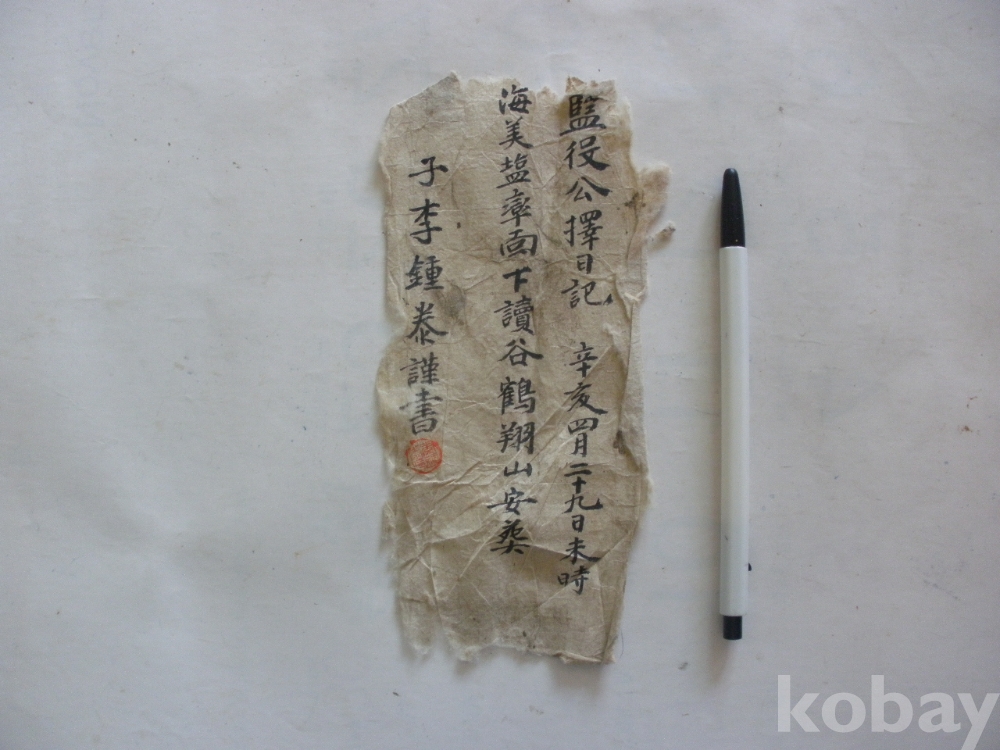 監役公擇日記 辛亥四月二十九日未時
海美塩率面下讀谷鶴翔山安葬
子李鍾泰謹書
kobay